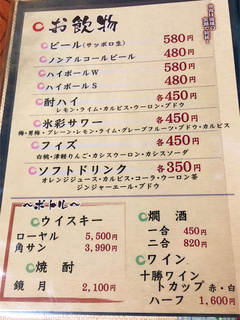 お飲物
ビール(サッポロ生) 580円
ノンアルコールビール 480円
ハイボールW 580円
ハイボールS 480円
酎ハイ 各450円
レモン・ライム・カルピス・ウーロン・ブドウ
氷彩サワー 各450円
梅・青梅・プレーン・レモン・ライム・グレープフルーツ・ブドウ・カルピス
フィズ 各450円
白桃・津軽りんご・カシスウーロン・カシスソーダ
ソフトドリンク 各350円
オレンジジュース・カルピス・コーラ・ウーロン茶
ジンジャーエール・ブドウ
〜ボトル〜
ウイスキー
ローヤル 5,500円
角サン 3,990円
焼酎
鏡月 2,100円
燗酒
一合 450円
二合 820円
ワイン
十勝ワイン
トカップ 赤・白
ハーフ 1,600円